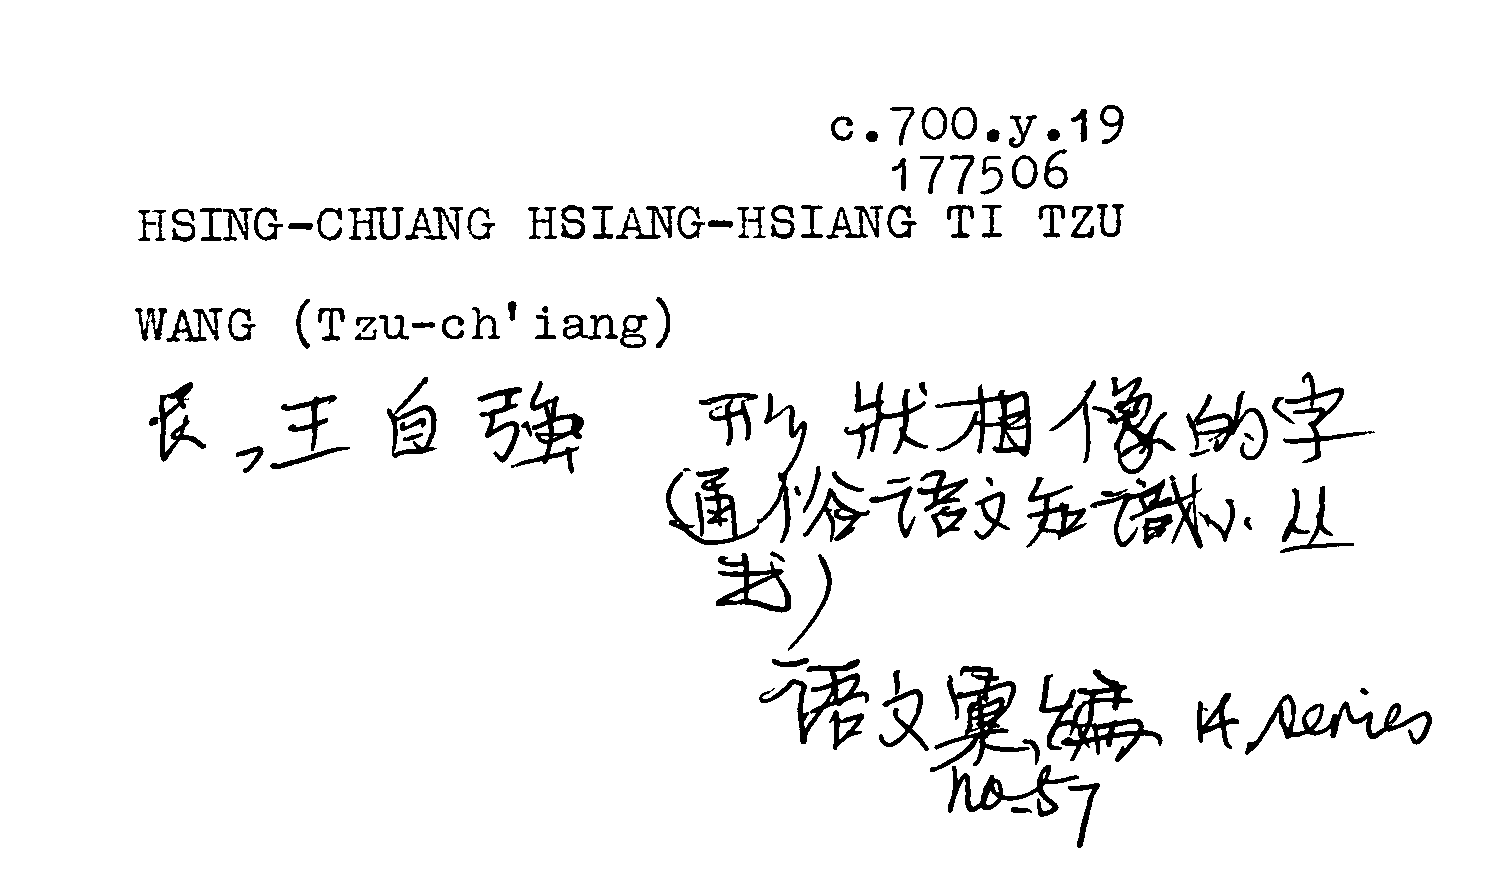 c.700.y.19
177506
HSING-CHUANG HSIANG-HSIANG TI TZU
WANG (Tzu-ch'iang)
長,王自強 形狀相像的字
(通俗语文知識小丛
书)
语文彙編 14 series
no.57